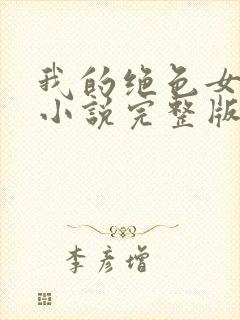 我的绝色女
小说完整版
李彦增